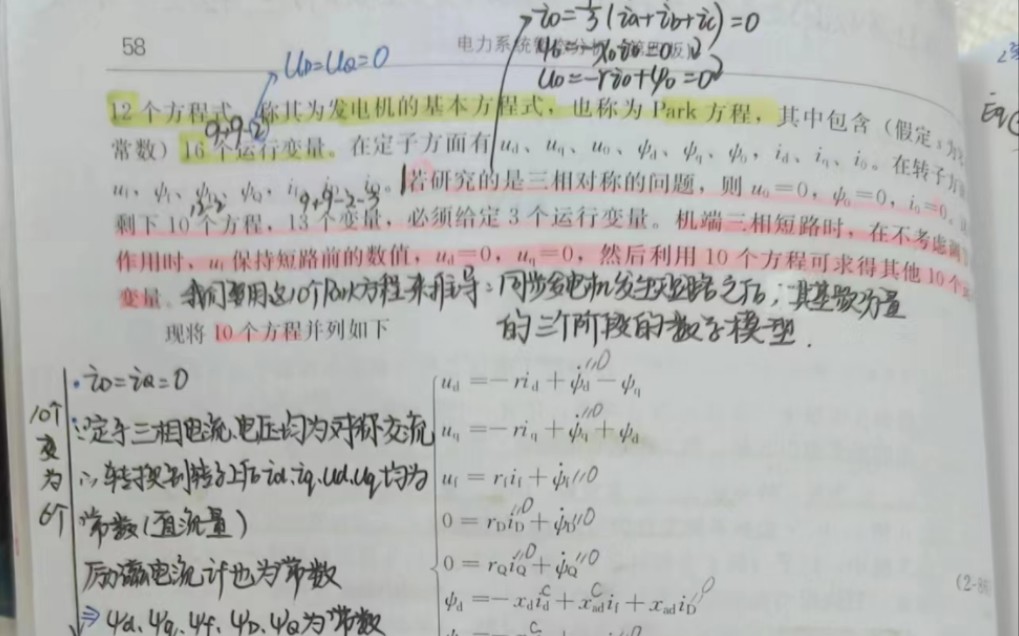 i₀=1/3(ia+ib+ic)=0
58 电力系统 分析
ψ₀=-x₀i₀=0
U_D=U_Q=0
u₀=-ri₀+ψ̇₀=0
12个方程式，称其为发电机的基本方程式，也称为 Park 方程，其中包含（假定 s 为
9+9-2
常数）16个运行变量。在定子方面有 u_d、u_q、u₀、ψ_d、ψ_q、ψ₀，i_d、i_q、i₀。在转子方
u_f、ψ_f、ψ_D、ψ_Q，i_f、i_D、i_Q。若研究的是三相对称的问题，则 u₀=0，ψ₀=0，i₀=0。
9+9-2-3
剩下10个方程，13个变量，必须给定3个运行变量。机端三相短路时，在不考虑调
作用时，u_f 保持短路前的数值，u_d=0，u_q=0，然后利用10个方程可求得其他10个
变量。我们要用这10个Park方程来推导：同步发电机发生短路之后，其基频分量
的三个阶段的数学模型.
现将10个方程并列如下
·i_D=i_Q=0
10个变为6个
∵定子三相电流、电压均为对称交流
∴转换到转子上后id、iq、ud、uq均为
常数(直流量)
励磁电流if也为常数
⇒ψd、ψq、ψf、ψD、ψQ为常数
u_d=-ri_d+ψ̇_d-ψ_q
u_q=-ri_q+ψ̇_q+ψ_d
u_f=r_fi_f+ψ̇_f
0=r_Di_D+ψ̇_D
0=r_Qi_Q+ψ̇_Q
ψ_d=-x_di_d+x_adi_f+x_adi_D
(2-